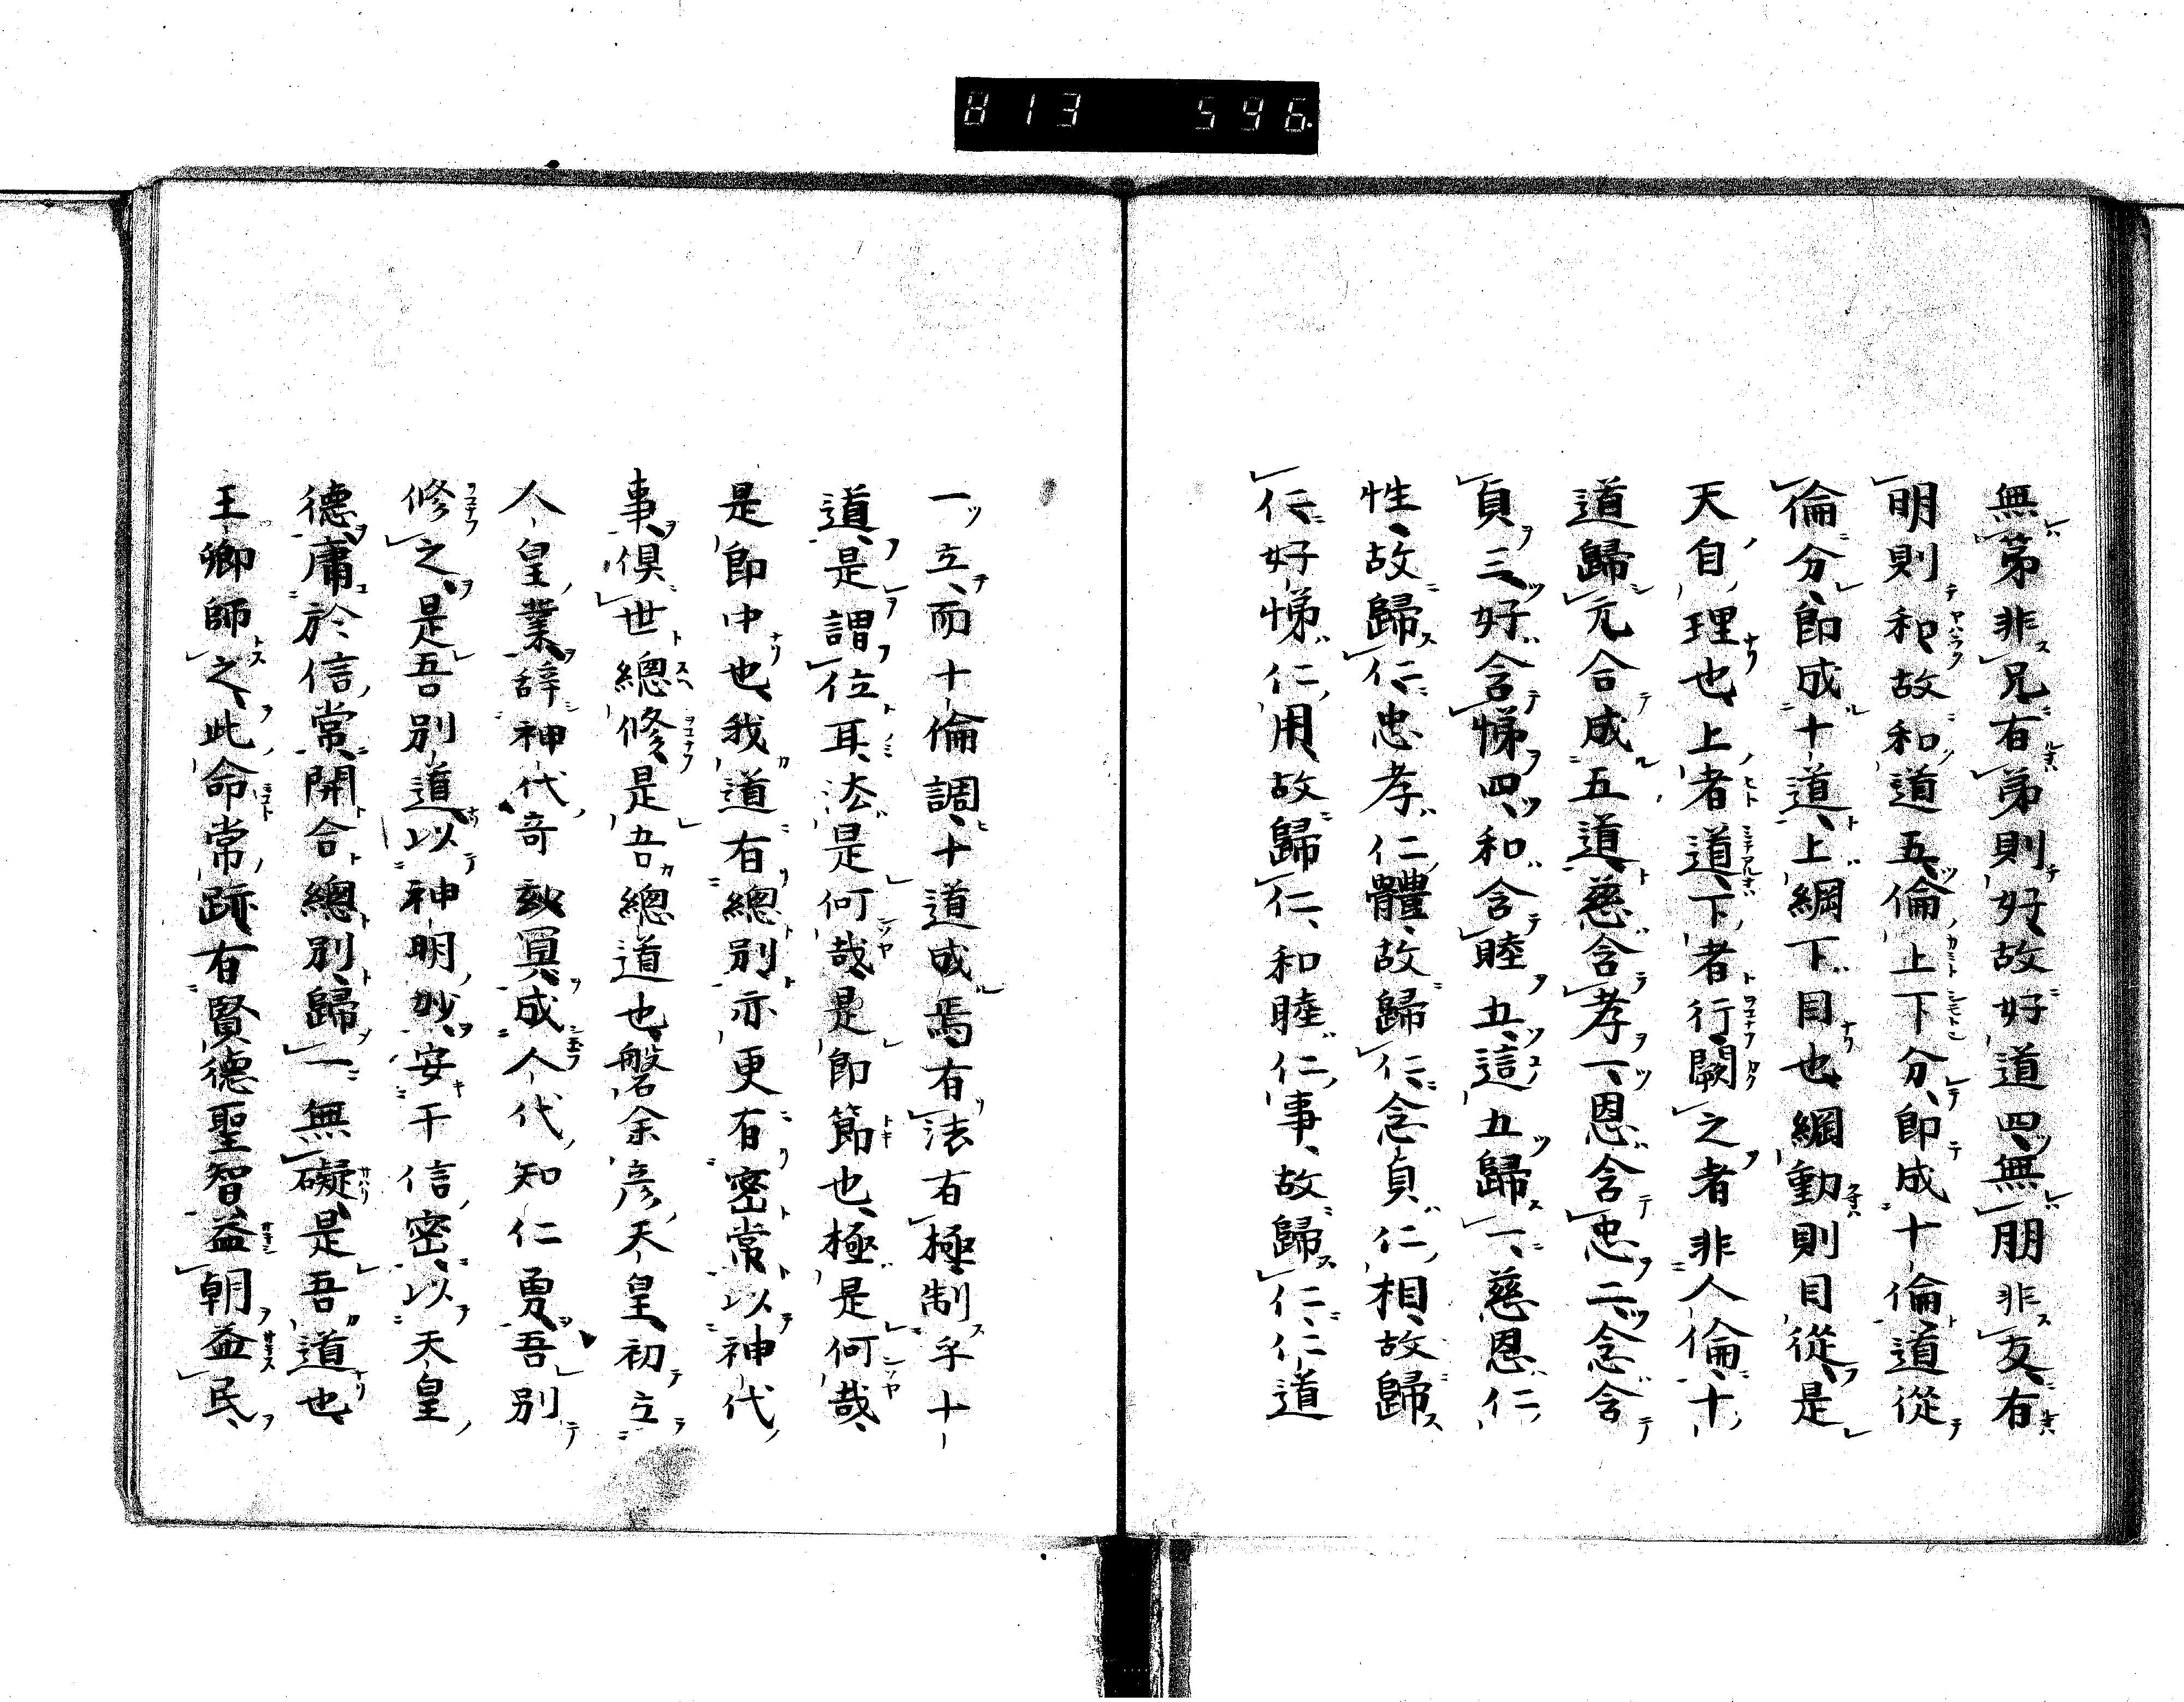 813 596
無弟非兄有弟則好故好道四無朋非友有
明則和故和道五倫上下分即成十倫道從
倫分即成十道上綱下目也綱動則目從是
天自理也上者道下者行闕之者非人倫十
道歸元合成五道慈含孝一恩含忠二念含
貞三好含悌四和含睦五這五歸一慈恩仁
性故歸仁忠孝仁體故歸仁念貞仁相故歸
仁好悌仁用故歸仁和睦仁事故歸仁仁道
一立而十倫調十道成焉有法有極制乎十
道是謂位耳法是何哉是即節也極是何哉
是即中也我道有總別亦更有密常以神代
事俱世總修是吾總道也磐余彦天皇初立
人皇業辞神代奇冥成人代知仁勇吾別
修之是吾別道以神明妙安干信密以天皇
德庸於信常開合總別歸一無礙是吾道也
王卿師之此命常跡有賢德聖智益朝益民